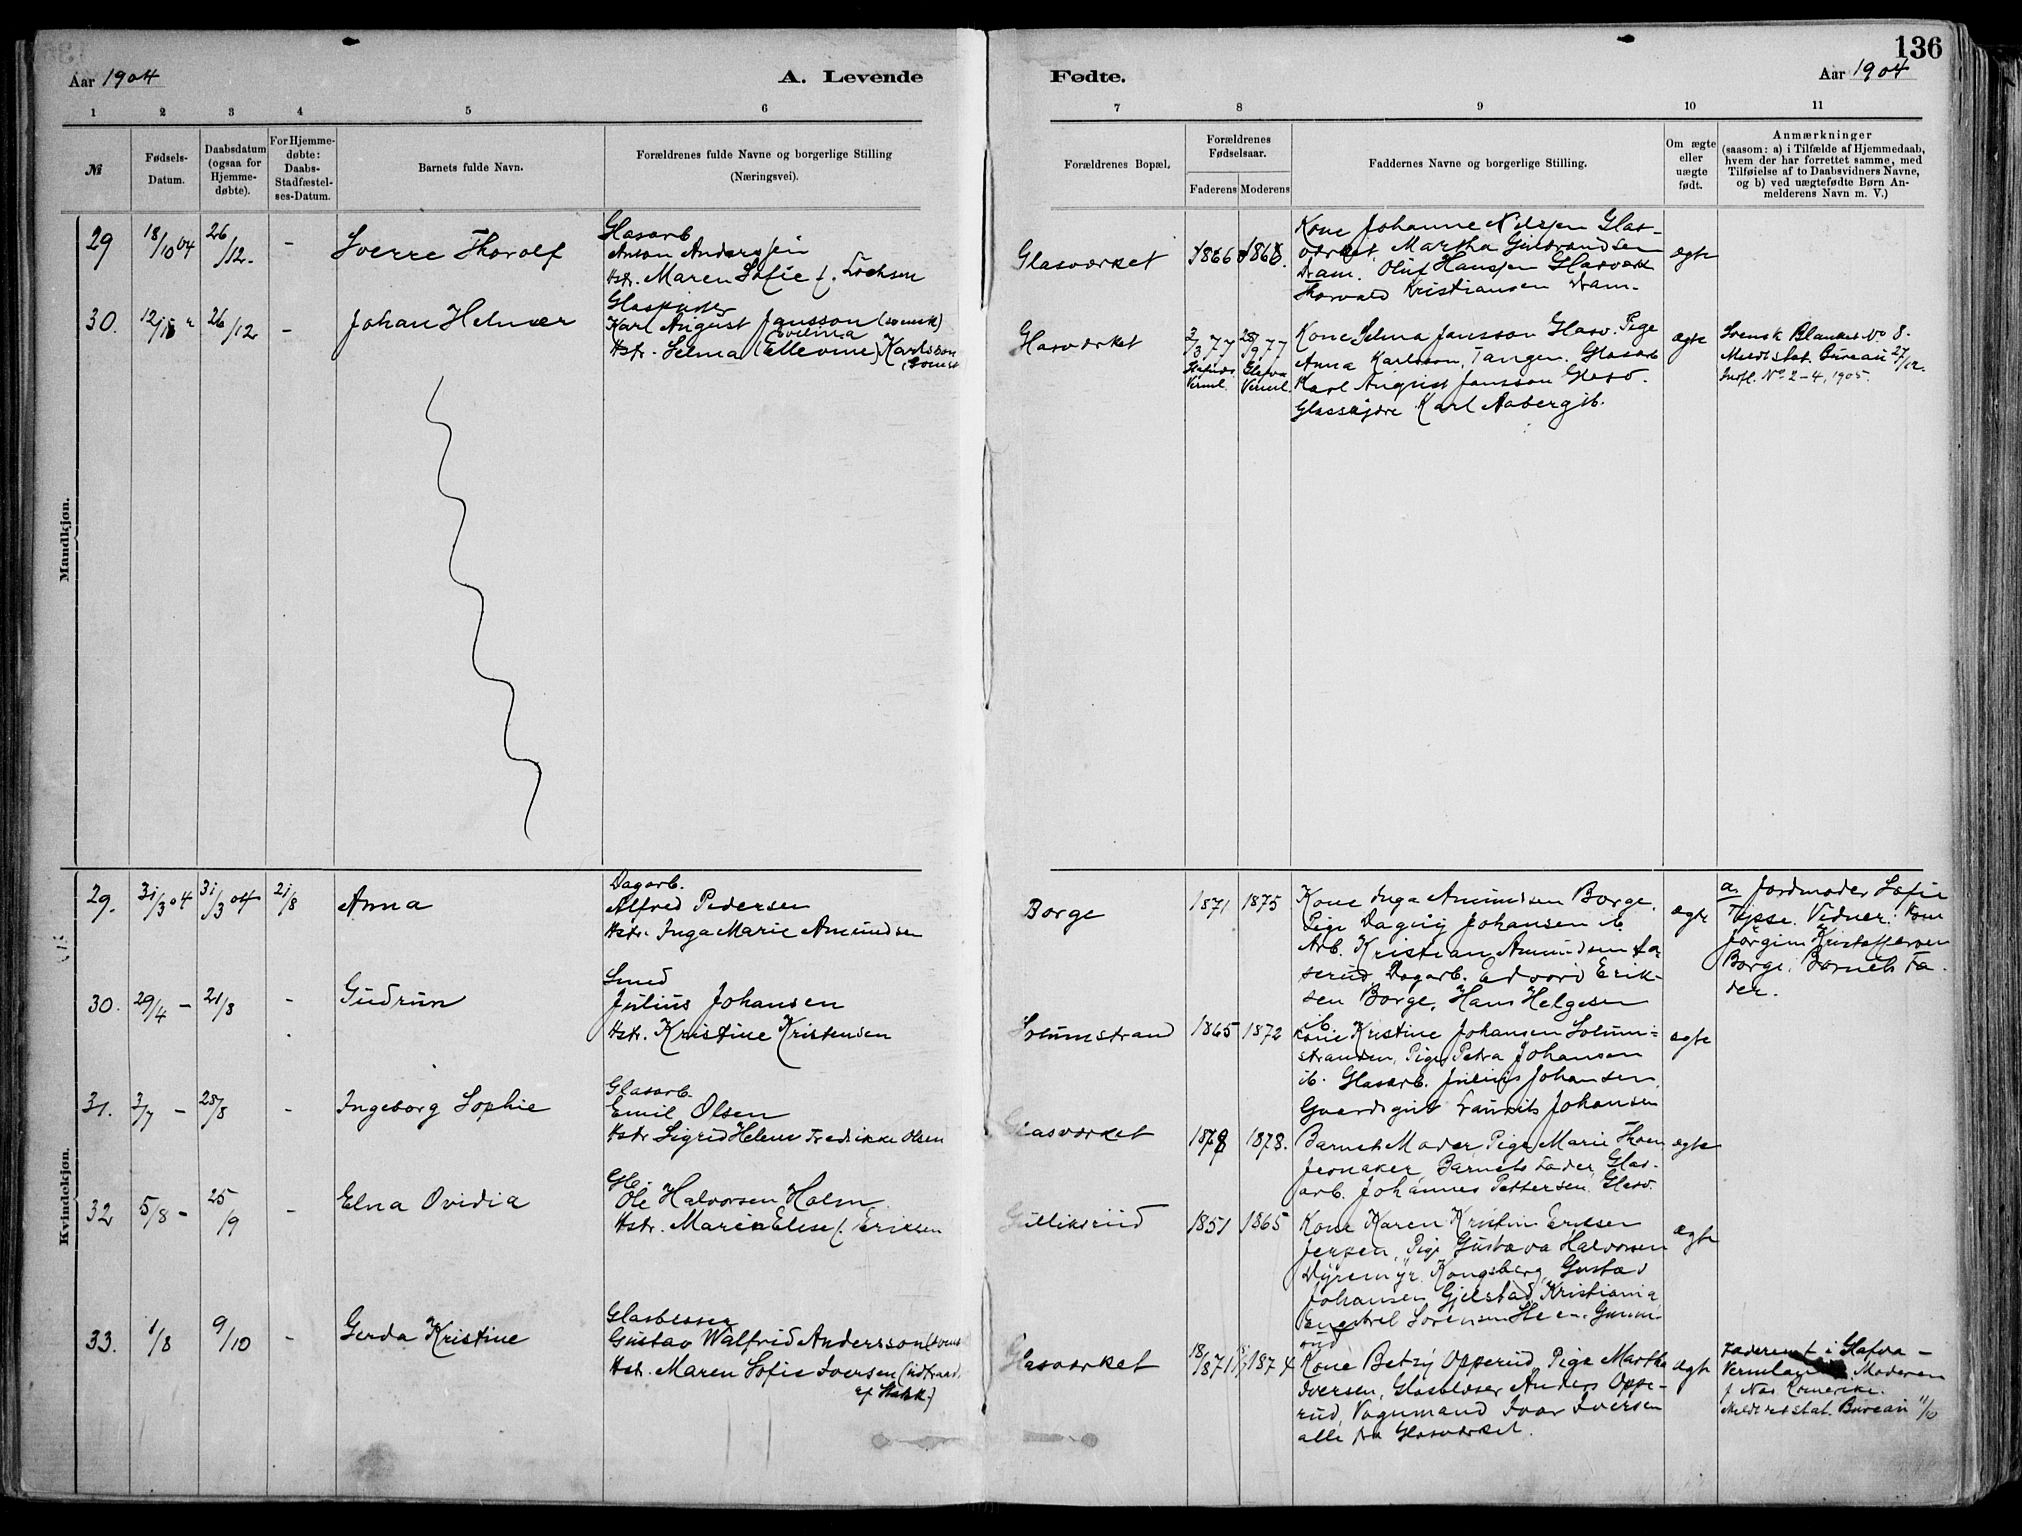 136
Aar 1904
A. Levende
Fødte.
Aar 1904
1 2 3 4 5 6 7 8 9 10 11
№
Fødsels-
Datum.
Daabsdatum
(ogsaa for
Hjemme-
døbte).
For Hjemme-
døbte:
Daabs-
Stadfæstel-
ses-Datum.
Barnets fulde Navn.
Forældrenes fulde Navne og borgerlige Stilling
(Næringsvei).
Forældrenes Bopæl,
Forældrenes
Fødselsaar.
Faderens Moderens
Faddernes Navne og borgerlige Stilling.
Om ægte
eller
uægte
født.
Anmærkninger
(saasom: a) i Tilfælde af Hjemmedaab,
hvem der har forrettet samme, med
Tilføielse af to Daabsvidners Navne,
og b) ved uægtefødte Børn An-
melderens Navn m. V.)
Mandkjøn.
29 18/10 04 26/12. - Sverre Thorolf
Glasarb
Anton Anderssen
Hstr. Maren Sofie f. Lochsen
Glasværket 1866 1866.
Kone Johanne Nilssen Glas-
værket, Martha Gulbrandsen
Dram. Oluf Hanssen Glasværk
Thorvald Kristiansen Dram.
ægte
30. 12/ 26/12 - Johan Helmer
Karl August Jansson (svensk)
Evelina
Hstr. Selma (Ellevine) Karlsson
Glasværket
2/3 77 28/9 77
Verml. Verml.
Kone Selma Jansson Glasv. Pige
Anna Karlsson, Tangen. Glasarb
Karl August Jansson Glasv.
Glasskjære Karl Aaberg ib.
ægte
Svensk Blanket No 8.
Meldt stat. Bureau 27/12.
Indfl. No 2-4, 1905.
Kvindekjøn.
29. 31/3 04 31/3 04 21/8 Anna
Dagarb.
Alfred Pedersen
Hstr. Inga Marie Amundsen
Borge 1871 1875
Kone Inga Amundsen Borge,
Pige Dagny Johansen ib.
Arb. Kristian Amundsen Aa
serud, Dagarb. Edvard Erik-
sen Borge, Hans Helgesen
ib.
ægte
a. Jordmoder Sofie
Tysse. Vidner: Kone
Jørgine Kristoffersen
Borge, Barnets Fa-
der.
30. 29/4 - 21/8 - Gudrun
Smed
Julius Johansen
Hstr. Kristine Kristensen
Solumstrand 1865 1872
Kone Kristine Johansen Solum-
stranden, Pige Petra Johansen
ib. Glasarb. Julius Johansen,
Gaardsgut Laurits Johansen
ægte
31. 3/7 - 28/8 - Ingeborg Sophie
Glasarb.
Emil Olsen
Hstr Sigrid Helene Fredrikke Olsen
Glasværket 1878.
Barnets Moder, Pige Marie Thoen
Jeonaker, Barnets Fader, Glas-
arb. Johannes Pettersen Glasv.
ægte
32 5/8 - 25/9 - Elna Ovidia
Gbr.
Ole Halvorsen Holm
Hstr. Maren Elise f. Eriksen
Gulliksrud 1851 1865
Kone Karen Kristine Eriksen
Jersen, Pige Gustava Halvorsen
Dyremyr Kongsberg, Gustav
Johansen Gjelstad, Kristiania
Sørensen
ægte
33. 1/8 9/10 - Gerda Kristine
Glasblæser
Gustav Walfrid Andersson (svensk)
Hstr. Maren Sofie Iversen (udtraadt
af Statsk.)
Glasværket 18/8 71 1874
Kone Betzy Opperud, Pige Martha
Iversen, Glasblæser Anders Oppe-
rud, Vognmand Ivar Iversen
alle fra Glasværket.
ægte
Faderen f. i Glafva -
Vermland. Moderen
f. Nes Romerike.
Meldt stat. Bureau 11/10